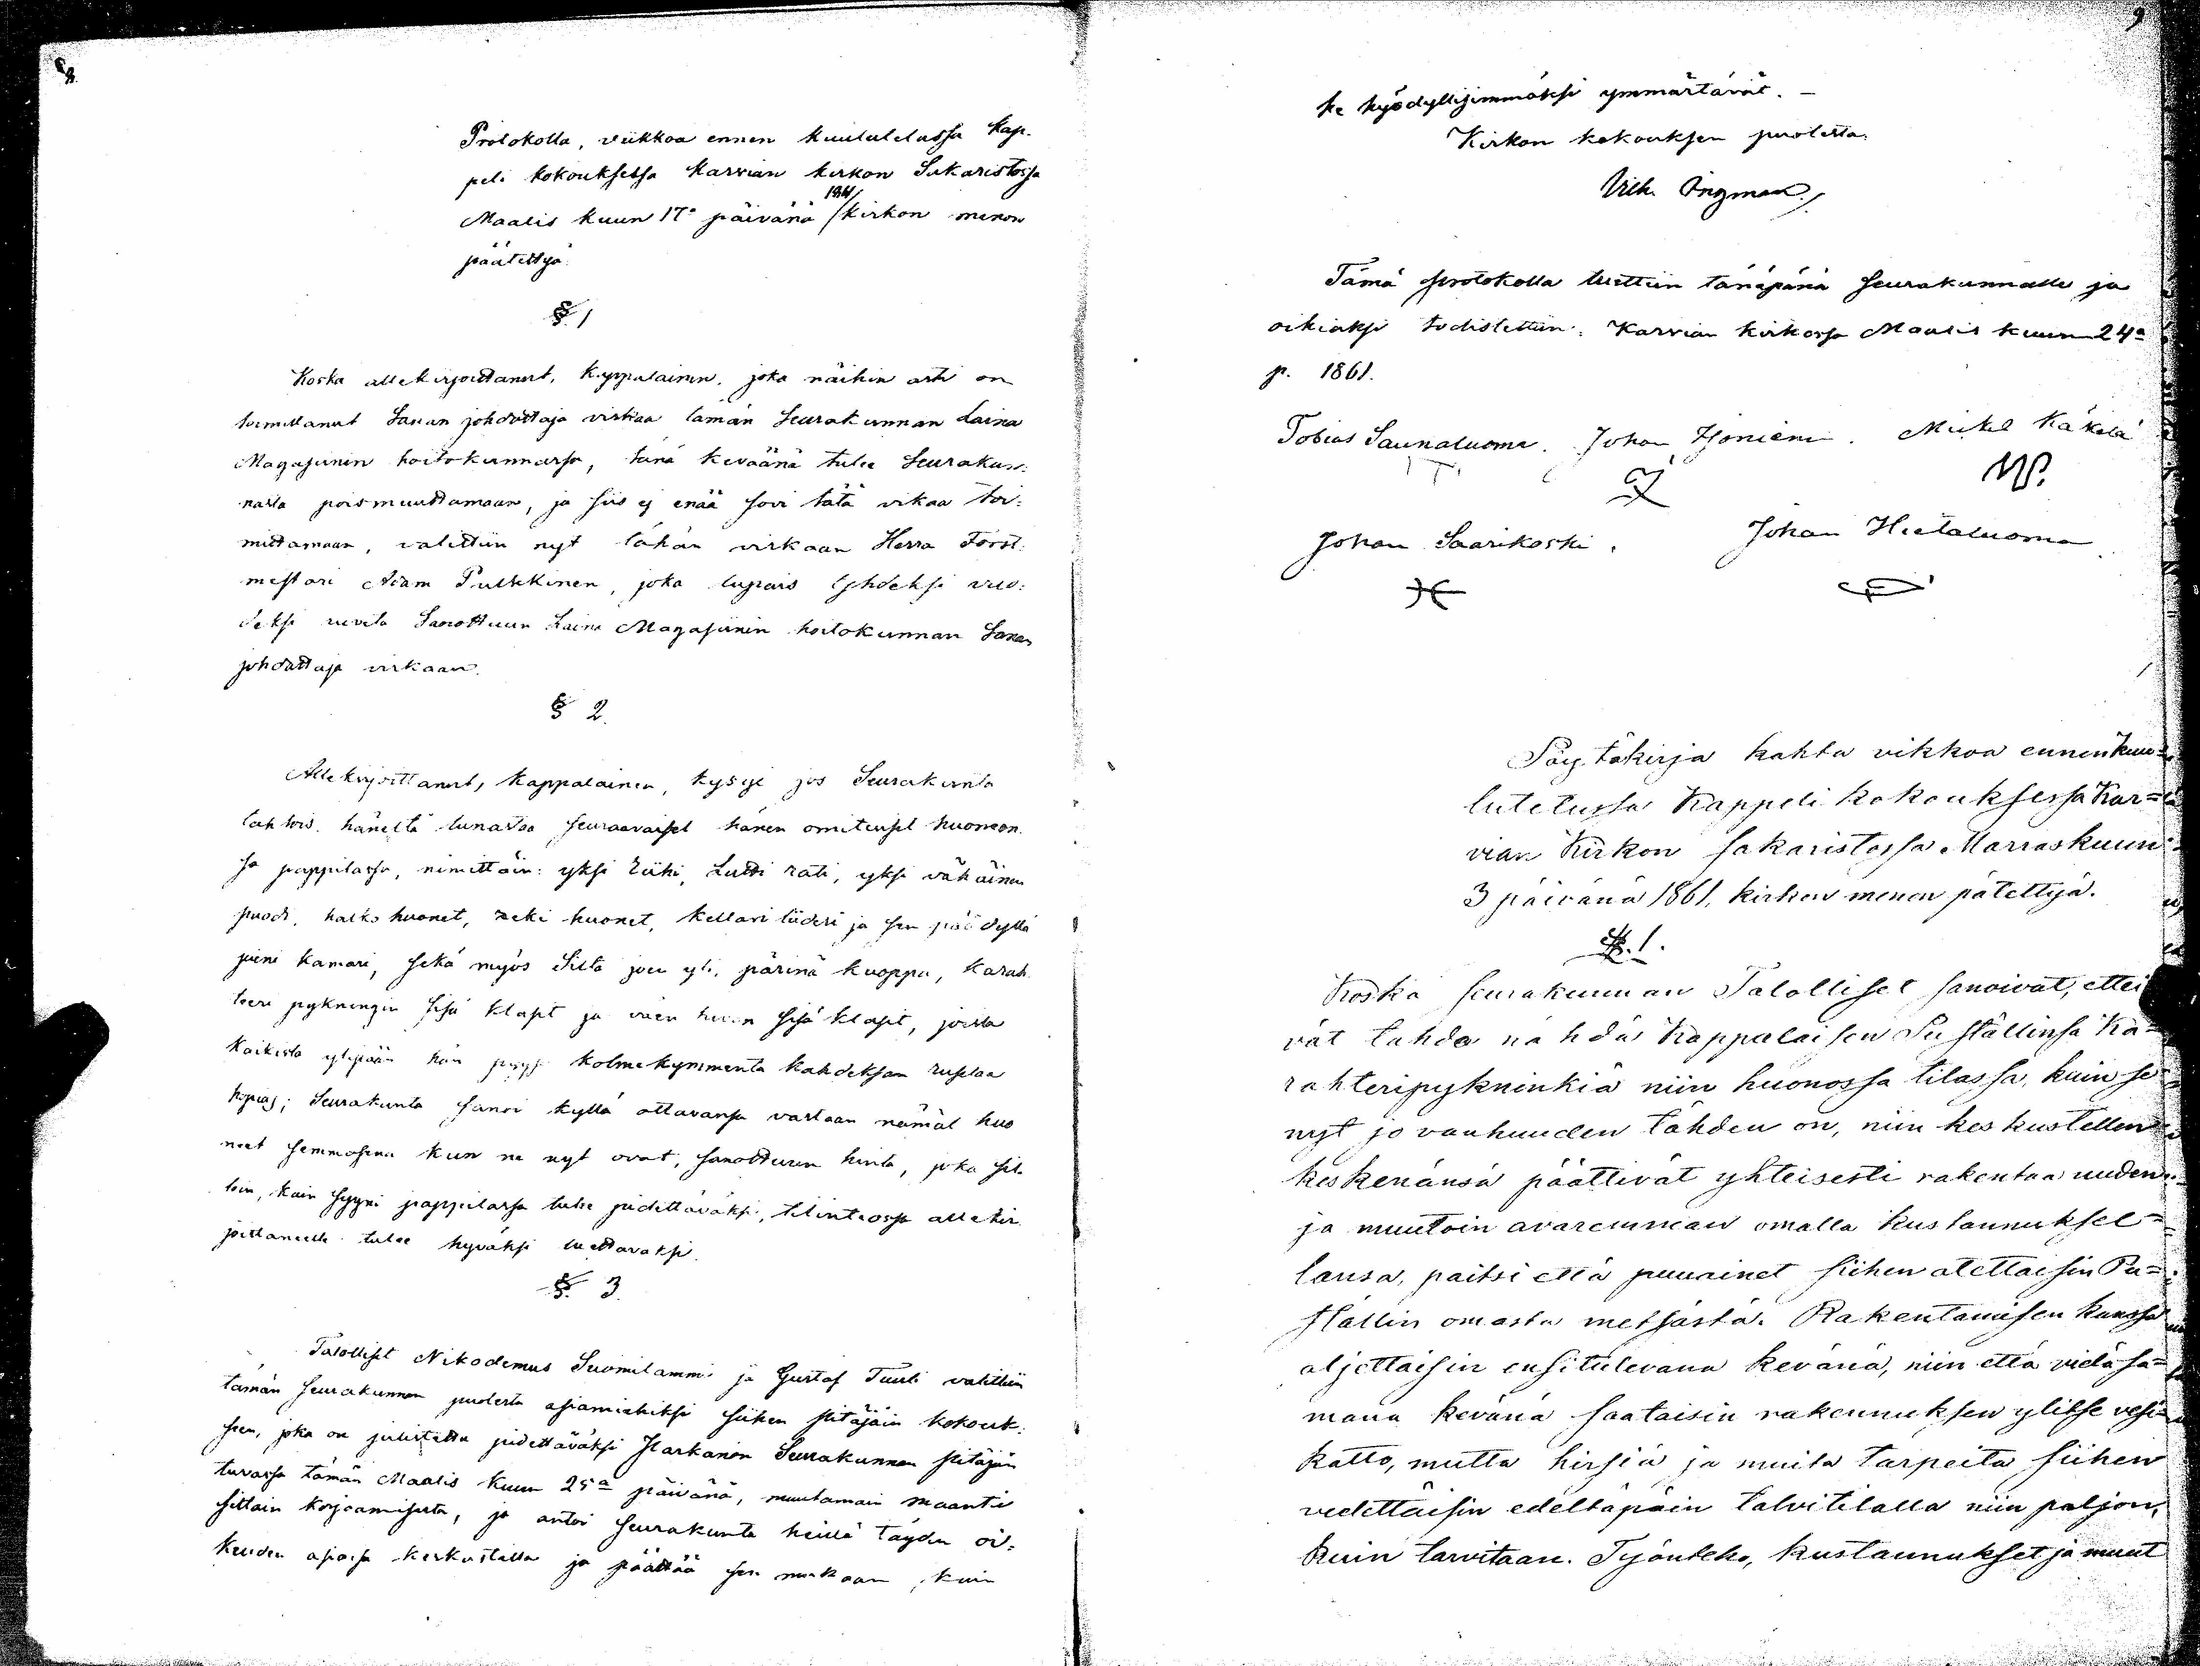 Protokolla, viikkoa ennen kuulutetussa Kap-
peli kokouksessa Karvian kirkon Sakaristossa
1861
Maalis kuun 17ª päivänä / kirkon menon
päätettyä.
§. 1
Koska allekirjoittanut, Kappalainen, joka näihin asti on
toimittanut Sanan johdattaja virkaa tämän Seurakunnan Laina
Magasiinin hoitokunnassa, tänä keväänä tulee Seurakun-
nasta poismuuttamaan, ja siis ej enää sovi tätä virkaa toi-
mittamaan, valittiin nyt tähän virkaan Herra Forst-
mestari Adam Pulkkinen, joka lupais yhdeksi vuo-
deksi ruveta Sanottuun Laina Magasiinin hoitokunnan Sanan
johdattaja virkaan.
§ 2.
Allekirjoittanut, Kappalainen, kysyi jos Seurakunta
tahtois häneltä lunastaa seuraavaiset hänen omituiset huoneen
sa pappilassa, nimittäin: yksi Riihi, Lutti rati, yksi vähäinen
puodi, halko huonet, reki huonet, kellari liideri ja sen päädyllä
pieni kamari, sekä myös Silta joen yli, pärinä kuoppa, Karah-
teeri pykningin sisä klasit ja väen huon sisä klasit, joista
kaikista ylipään hän pyysi kolmekymmentä kahdeksan ruplaa
hopiaj; Seurakunta sanoi kyllä ottavansa vastaan nämät huo
neet semmosena kun ne nyt ovat, sanottuun hinta, joka sil-
loin, kuin syyni pappilassa tulee pidettäväksi, tilinteossa allekir-
joittaneelle tulee hyväksi luettavaksi.
§. 3.
Talolliset Nikodemus Suomilammi ja Gustaf Tuuli valittiin
tämän seurakunnan puolesta asiamiehiksi siihen pitäjäin kokouk-
seen, joka on julistettu pidettäväksi Ikaalisten Seurakunnan pitäjän
tuvassa tämän Maalis kuun 25ª päivänä, muutamain maantie
siltain korjaamisesta, ja antoi seurakunta heille täyden oi-
keuden asiassa keskustella ja päättää sen mukaan, kuin
9
he hyödyllisimmäksi ymmärtävät. –
Kirkon kokouksen puolesta:
Vilh. Ingman./
Tämä protokolla luettiin tänäpänä seurakunnalle ja
oikiaksi todistettiin. Karvian kirkossa Maalis kuun 24ª
p. 1861.
Tobias Saunaluoma. Johan Ojoniemi. Mickel Käkelä
Johan Saarikoski. Johan Hietaluoma
Pöytäkirja kahta vikkoa ennen kuu-
lutetussa Kappeli kokouksessa Kar-
vian Kirkon sakaristossa Marraskuun
3 päivänä 1861, kirkon menon pätettyä.
§. 1.
Koska seurakunnan Talolliset sanoivat, ettei
vät tahdo nähdä Kappalaisen Puställinsä Ka-
rahteripykninkiä niin huonossa tilassa, kuin se
nyt jo vanhuuden tähden on, niin keskustellen
keskenänsä päättivät yhteisesti rakentaa uuden
ja muutoin avaremman omalla kustannuksel-
lansa, paitsi että puuainet siihen otettaisin Pu-
ställin omasta metsästä. Rakentamisen kanssa
aljettaisin ensitulevana keväna, niin että vielä sa-
mana keväna saataisin rakennuksen ylitse vesi-
katto, mutta hirsiä ja muita tarpeita siihen
vedettäisin edeltäpäin talvitilalla niin paljon,
kuin tarvitaan. Työnteko, kustannukset ja muut